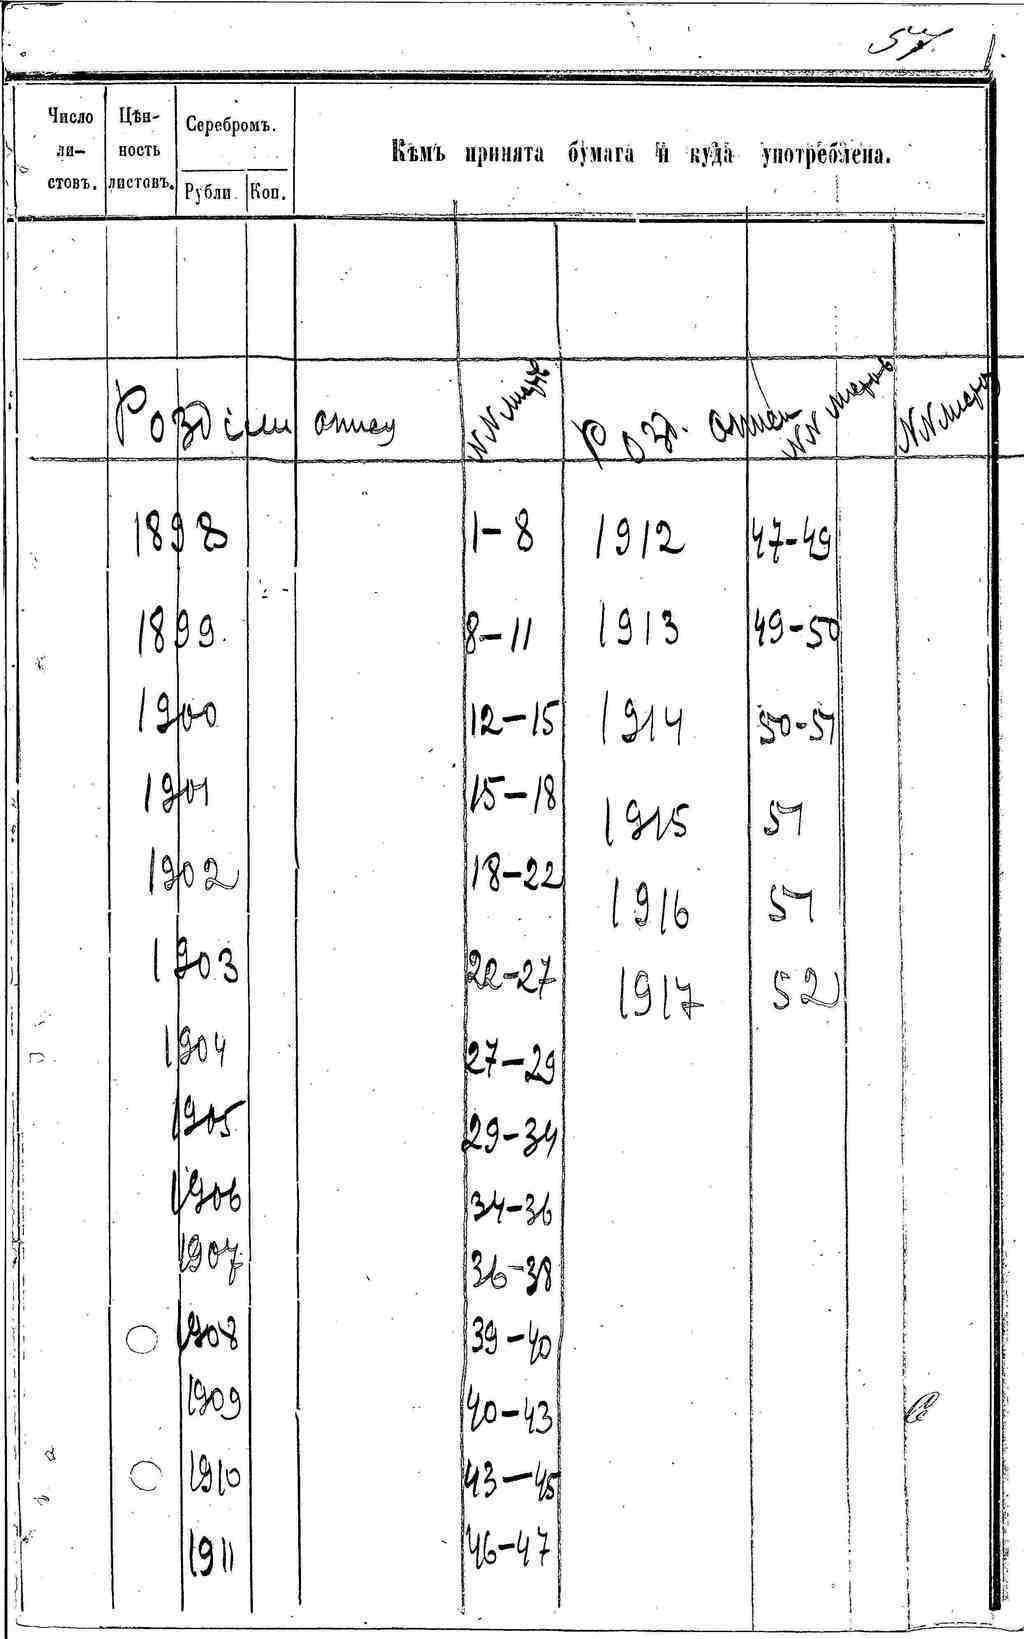 54
Число Цѣн- Серебромъ. Кѣмъ принята бумага и куда употреблена.
ли- ность
стовъ. листовъ. Рубли. Коп.
Розділи опису NN листів Розд. описи NN листов NN листов
1898 1-8 1912 47-49
1899. 8-11 1913 49-50
1900 12-15 1914 50-51
1901 15-18 1915 51
1902 18-22 1916 51
1903 22-27 1917 52
1904 27-29
1905 29-34
1906 34-36
1907 36-38
1908 39-40
1909 40-43
1910 43-45
1911 46-47